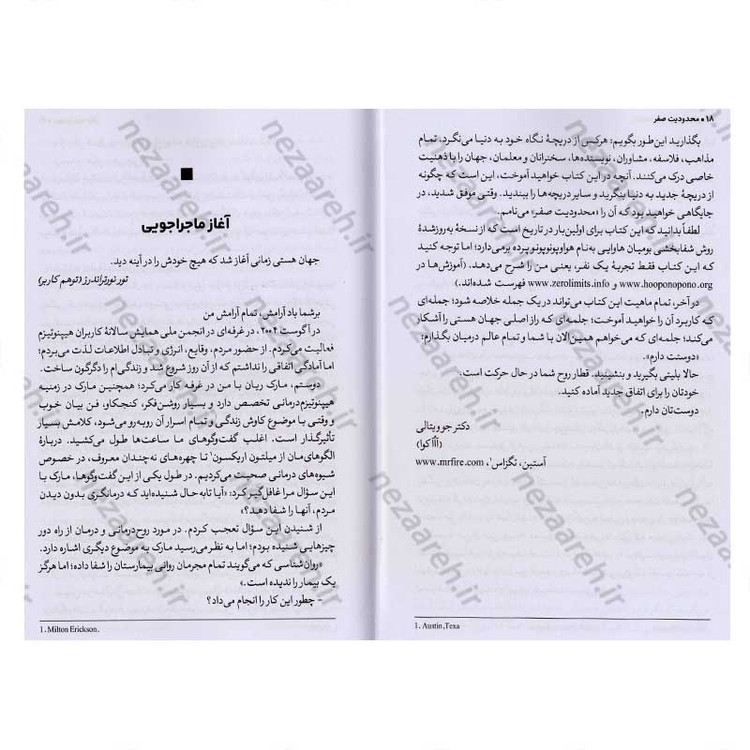 ۱۸ ● محدودیت صفر
بگذارید این‌طور بگویم: هرکس از دریچهٔ نگاه خود به دنیا می‌نگرد، تمام
مذاهب، فلاسفه، مشاوران، نویسنده‌ها، سخنرانان و معلمان، جهان را با ذهنیت
خاصی درک می‌کنند. آنچه در این کتاب خواهید آموخت، این است که چگونه
از دریچهٔ جدید به دنیا بنگرید و سایر دریچه‌ها را ببندید. وقتی موفق شدید، در
جایگاهی خواهید بود که آن را «محدودیت صفر» می‌نامم.
لطفاً بدانید که این کتاب برای اولین‌بار در تاریخ است که از نسخهٔ به‌روزشدهٔ
روش شفابخشی بومیان هاوایی به‌نام هواوپونوپونو پرده برمی‌دارد؛ اما توجه کنید
که این کتاب فقط تجربهٔ یک نفر، یعنی من را شرح می‌دهد. (آموزش‌ها در
www.hooponopono.org و www.zerolimits.info فهرست شده‌اند.)
در آخر، تمام ماهیت این کتاب می‌تواند در یک جمله خلاصه شود؛ جمله‌ای
که کاربرد آن را خواهید آموخت؛ جمله‌ای که راز اصلی جهان هستی را آشکار
می‌کند؛ جمله‌ای که می‌خواهم همین الان با شما و تمام عالم درمیان بگذارم:
«دوستت دارم».
حالا بلیتی بگیرید و بنشینید. قطار روح شما در حال حرکت است.
خودتان را برای اتفاق جدید آماده کنید.
دوست‌تان دارم.
دکتر جو ویتالی
(اُآ آکوا)
آستین، تگزاس۱، www.mrfire.com
1. Austin ,Texa
آغاز ماجراجویی
جهان هستی زمانی آغاز شد که هیچ خودش را در آینه دید.
تور نورتراندرز (توهم کاربر)
برشما باد آرامش، تمام آرامش من
در آگوست ۲۰۰۴، در غرفه‌ای در انجمن ملی همایش سالانهٔ کاربران هیپنوتیزم
فعالیت می‌کردم. از حضور مردم، وقایع، انرژی و تبادل اطلاعات لذت می‌بردم؛
اما آمادگی اتفاقی را نداشتم که از آن روز شروع شد و زندگی‌ام را دگرگون ساخت.
دوستم، مارک ریان با من در غرفه کار می‌کرد؛ همچنین مارک در زمینه
هیپنوتیزم‌درمانی تخصص دارد و بسیار روشن‌فکر، کنجکاو، فن بیان خوب
و وقتی با موضوع کاوش زندگی و تمام اسرار آن روبه‌رو می‌شود، کلامش بسیار
تأثیرگذار است. اغلب گفت‌وگوهای ما ساعت‌ها طول می‌کشید. دربارهٔ
الگوهای‌مان از میلتون اریکسون۱ تا چهره‌های نه‌چندان معروف، در خصوص
شیوه‌های درمانی صحبت می‌کردیم. در طول یکی از این گفت‌وگوها، مارک با
این سؤال مرا غافل‌گیر کرد: «آیا تابه‌حال شنیده‌اید که درمانگری بدون دیدن
مردم، آنها را شفا دهد؟»
از شنیدن این سؤال تعجب کردم. در مورد روح‌درمانی و درمان از راه دور
چیزهایی شنیده بودم؛ اما به نظر می‌رسید مارک به موضوع دیگری اشاره دارد.
«روان‌شناسی که می‌گویند تمام مجرمان روانی بیمارستان را شفا داده؛ اما هرگز
یک بیمار را ندیده است.»
- چطور این کار را انجام می‌داد؟
1. Milton Erickson.
nezaareh.ir
nezaareh.ir
nezaareh.ir
nezaareh.ir
nezaareh.ir
nezaareh.ir
nezaareh.ir
nezaareh.ir